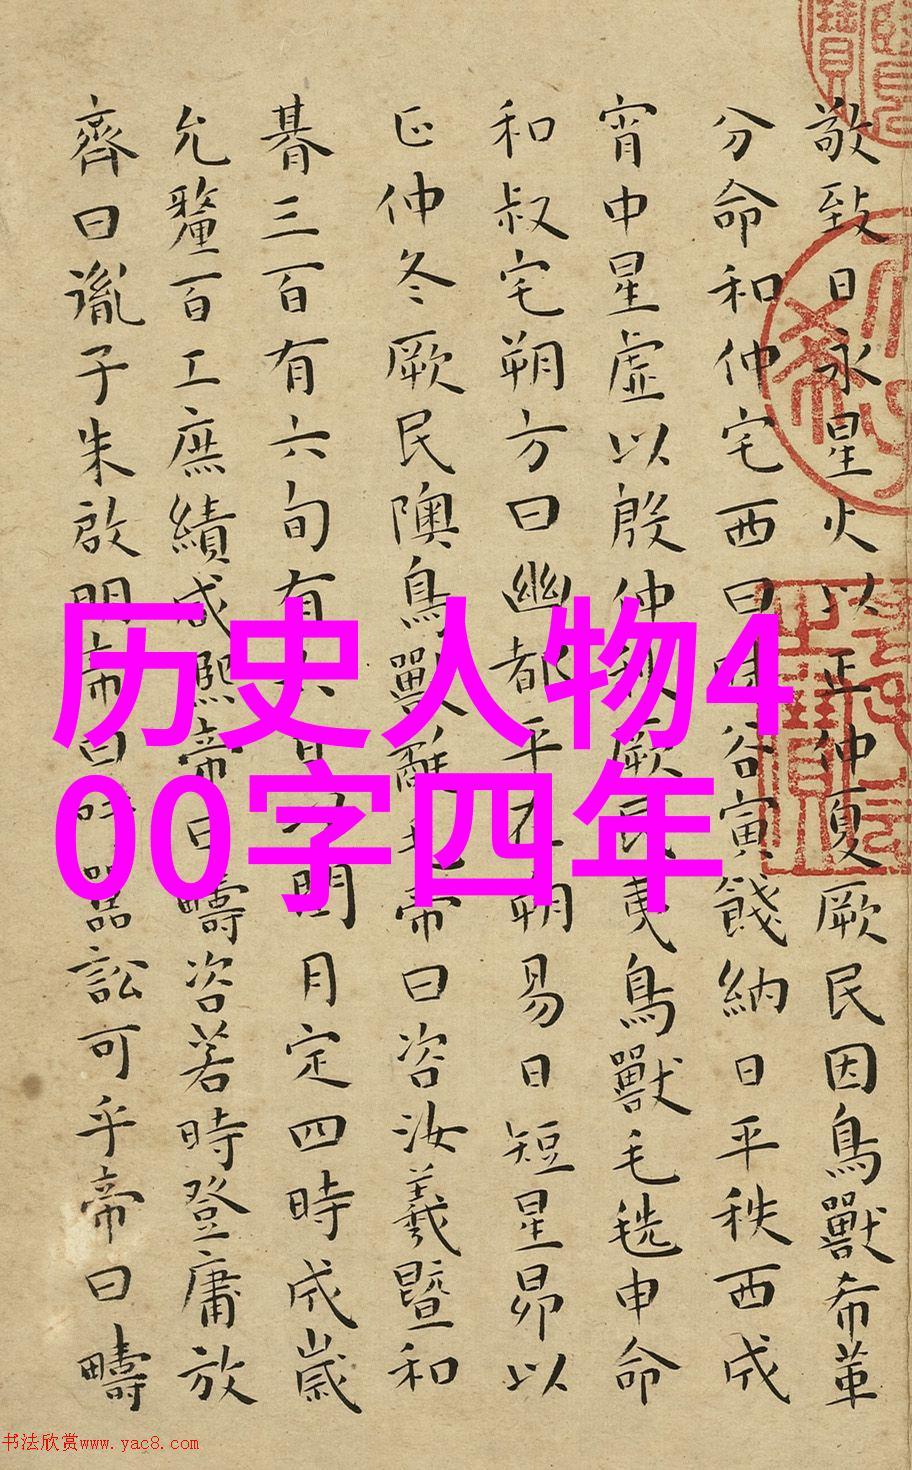 历史人物4
00字四年
敬致日永星火以正仲夏厥民因鳥獸希革
分命和仲宅西曰昧谷寅餞納日平秩西成
宵中星虛以殷仲秋厥民夷鳥獸毛毨申命
和叔宅朔方曰幽都平在朔易日短星昴以
正仲冬厥民隩鳥獸氄毛帝曰咨汝羲暨和
朞三百有六旬有六日以閏月定四時成歲
允釐百工庶績咸熙帝曰疇咨若時登庸放
齊曰胤子朱啟明帝曰吁嚚訟可乎帝曰疇
书法欣赏www.yac8.com